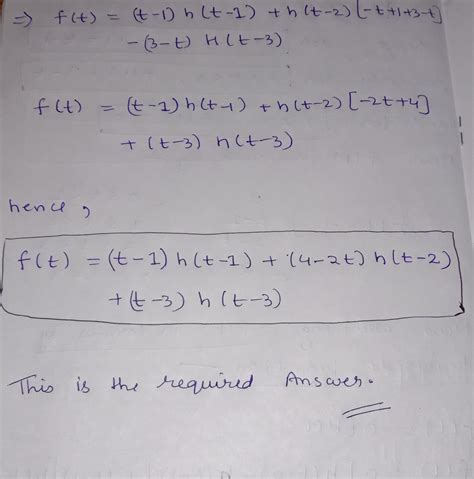 ⇒ f(t) = (t-1) h(t-1) + h(t-2) [-t+1+3-t]
- (3-t) H(t-3)
f(t) = (t-1) h(t-1) + h(t-2) [-2t+4]
+ (t-3) h(t-3)
hence,
f(t) = (t-1) h(t-1) + (4-2t) h(t-2)
+ (t-3) h(t-3)
This is the required Answer.